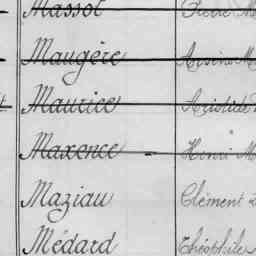 Massot
Maugère Arsène
Maurice Aristide
Maxence Henri
Maziau Clément
Médard Théophile